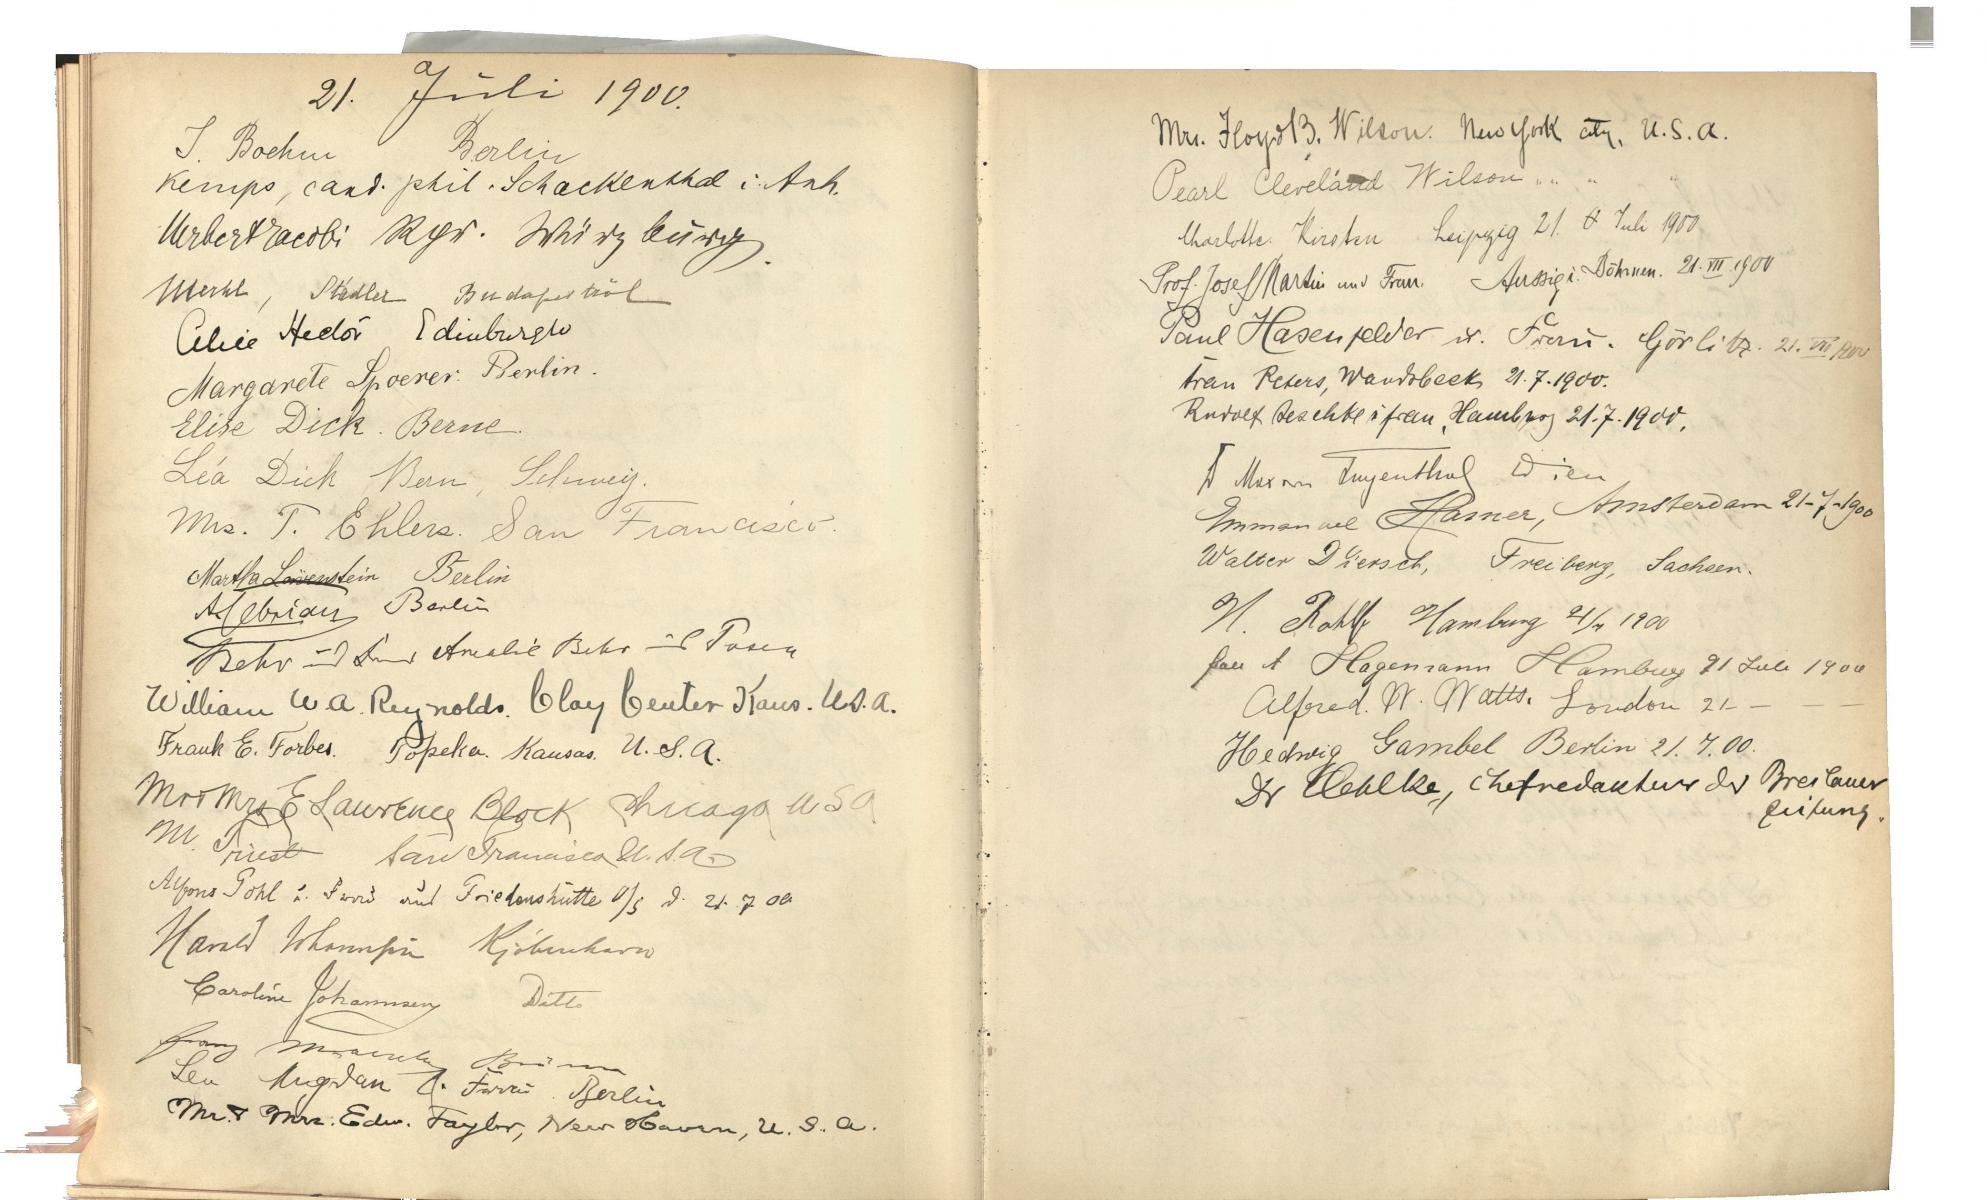 21. Juli 1900.
J. Boehm Berlin
Kemps, cand. phil. Schackenthal i. Anh.
Herbert Jacobi Würzburg.
Merkl, Städler Budapestról
Alice Hector Edinburgh
Margarete Spoerer. Berlin.
Elise Dick. Berne.
Léa Dick Bern, Schweiz.
Mrs. T. Ehlers. San Francisco.
Martha Lövenstein Berlin
Berlin
Behr und Frau Amalie Behr aus Posen
William W. A. Reynolds. Clay Center Kans. U.S.A.
Frank E. Forbes. Topeka. Kansas. U.S.A.
Mr & Mrs E Lawrence Block Chicago USA
M. Triest San Francisco U.S.A.
Alfons Pohl u. Frau aus Friedenshütte O/S d. 21. 7 00
Harald Kjöbenhavn
Caroline Johannsen Ditto
Franz Brünn
Leu Mugdan u. Frau Berlin
Mr. & Mrs. Edw. Taylor, New Haven, U.S.A.
Mrs. Floyd B. Wilson. New York city, U.S.A.
Pearl Cleveland Wilson " " " "
Charlotte Kirsten Leipzig 21. Juli 1900
Prof. Josef Martin und Frau. Aussig i. Böhmen. 21. VII 1900
Paul Hasenfelder u. Frau. Görlitz. 21. VII 1900
Frau Peters, Wandsbeck 21.7.1900.
Rudolf Jeschke & frau, Hamburg 21.7.1900.
Wien
Emmanuel Hamer, Amsterdam 21-7-1900
Walter Diersch, Freiberg, Sachsen.
H. Rohlf Hamburg 21/7 1900
frau A Hagemann Hamburg 21 Juli 1900
Alfred. W. Watts. London 21 – – –
Hedwig Gambel Berlin 21.7.00.
Dr Oehlke, Chefredakteur der Breslauer
Zeitung.